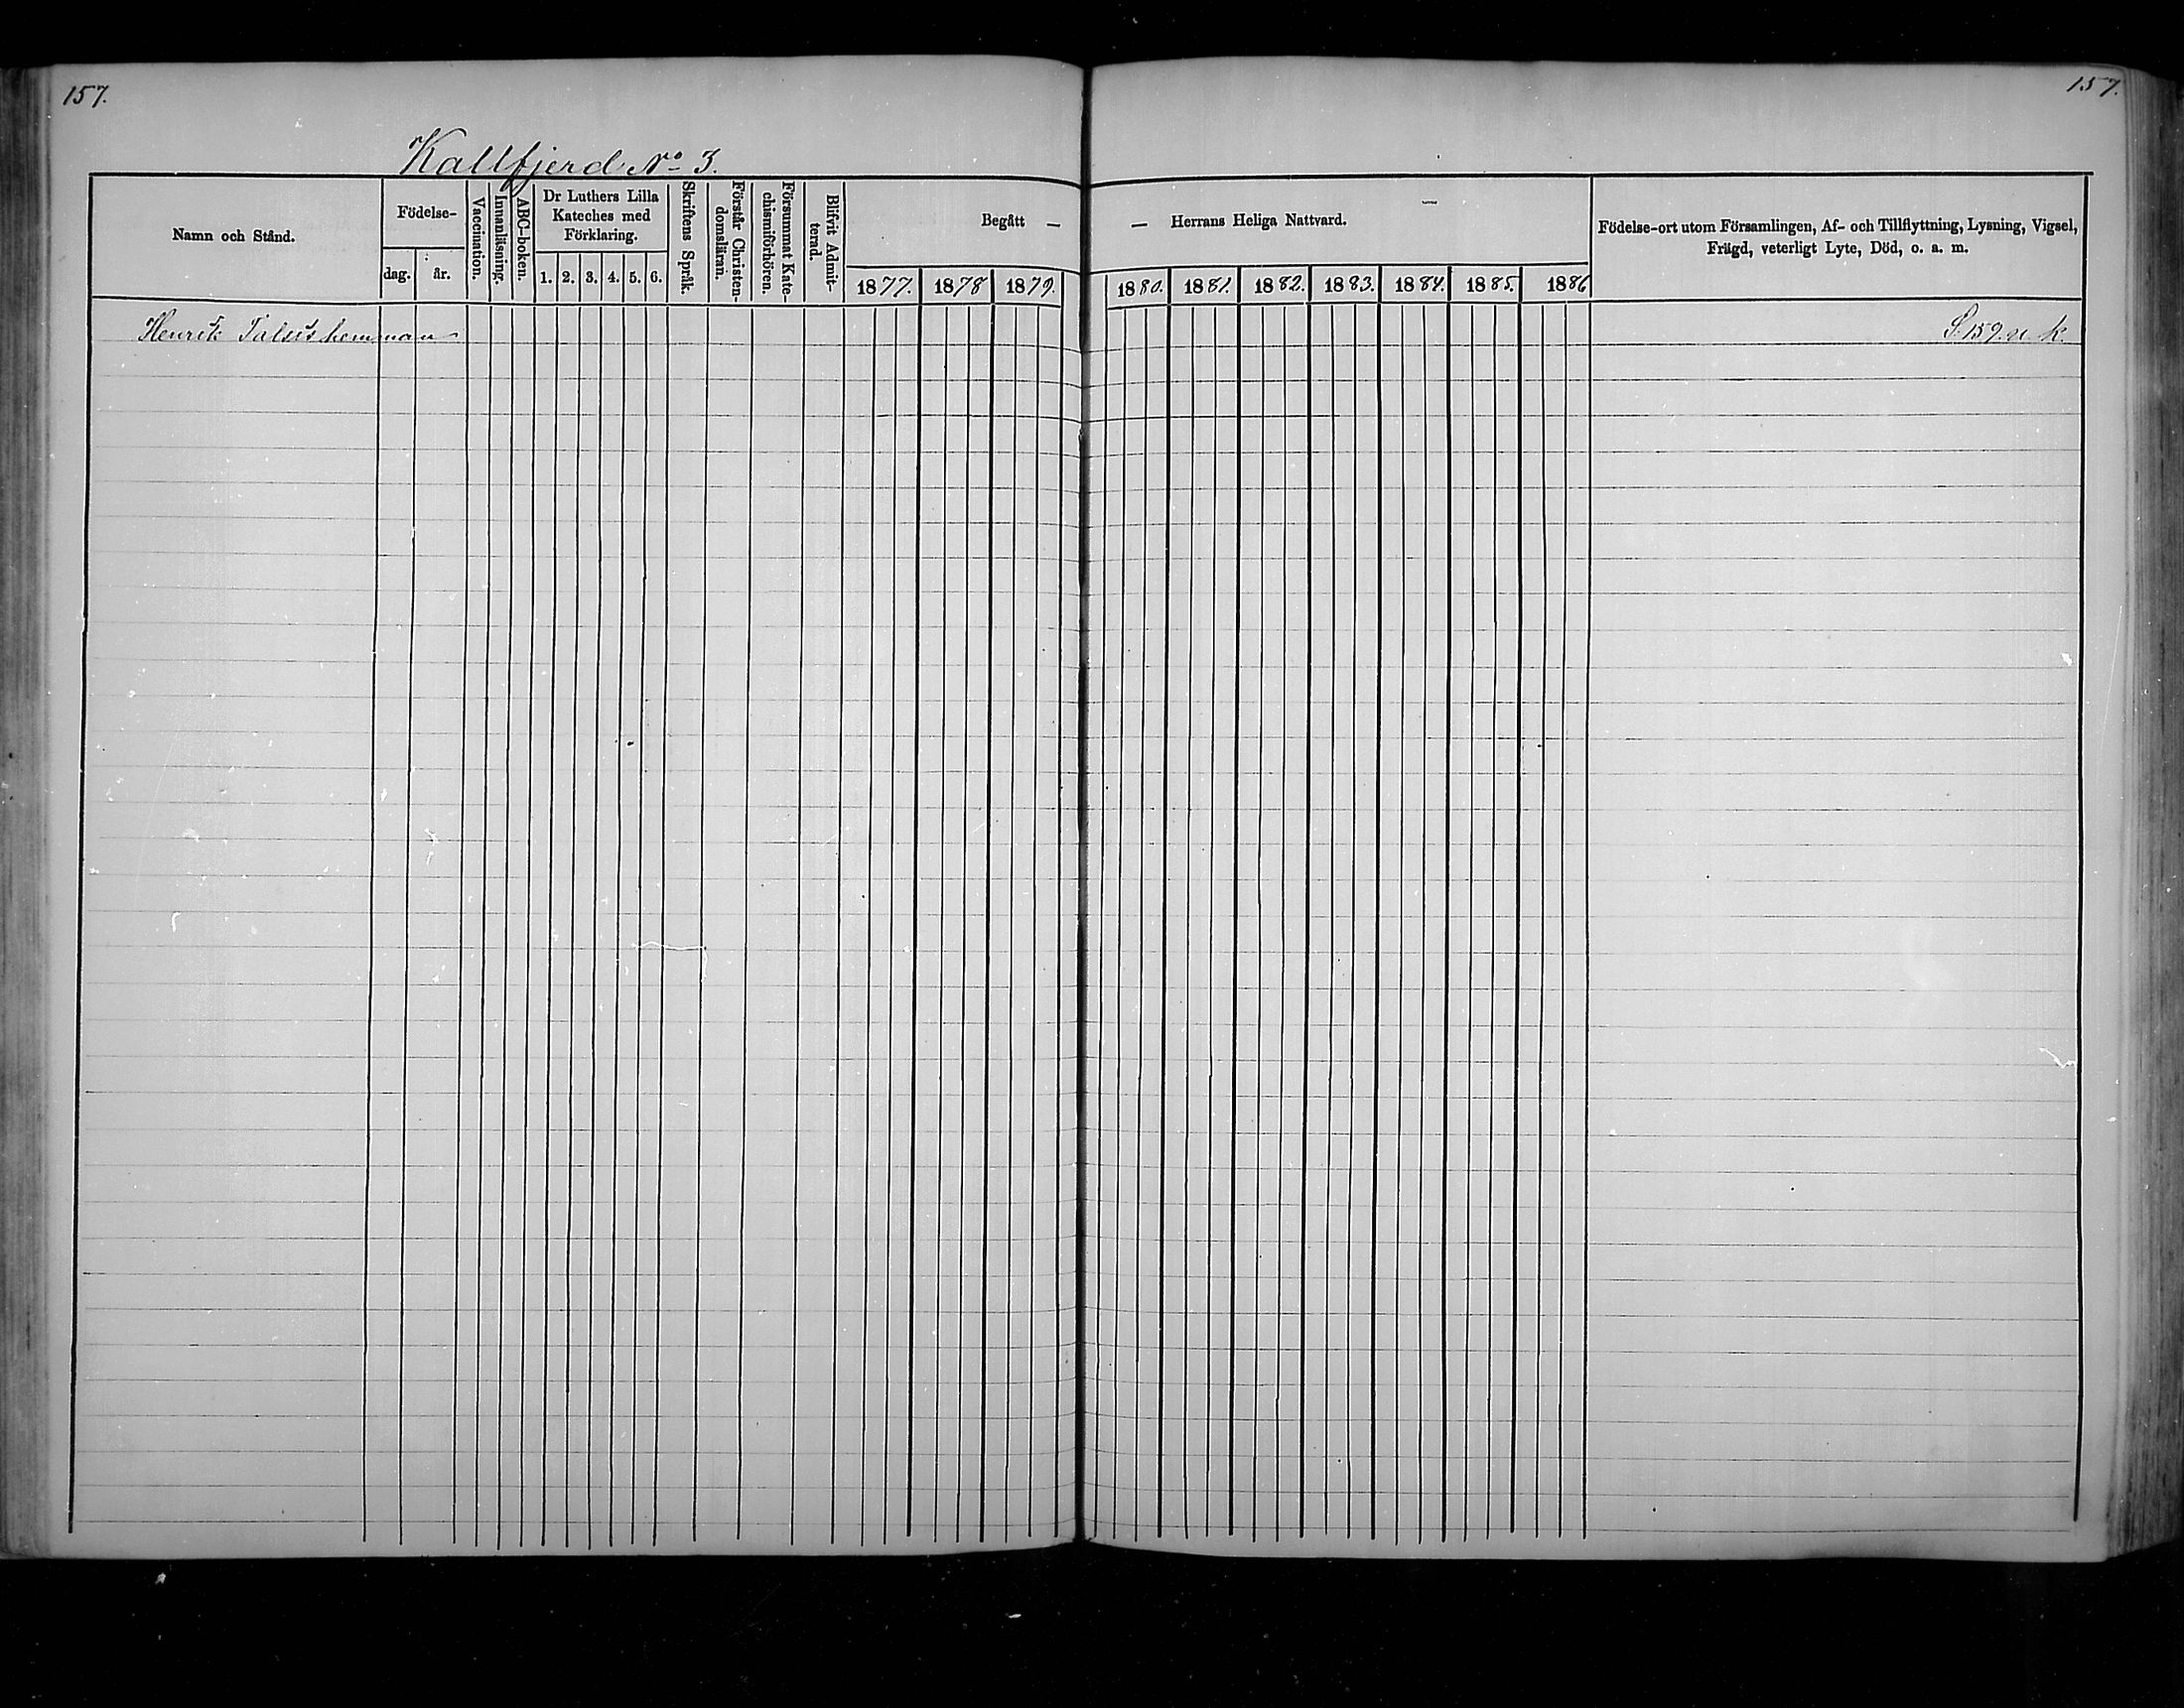 157.
157.
Kallfjerd No 3.
Namn och Stånd.
Födelse-
dag.
år.
Vaccination.
Innanläsning.
ABC-boken.
Dr Luthers Lilla
Kateches med
Förklaring.
1. 2. 3. 4. 5. 6.
Skriftens Språk.
Förstår Christen-
domsläran.
Försummat Kate-
chismiförhören.
Blifvit Admit-
terad.
Begått —
— Herrans Heliga Nattvard. —
1877. 1878 1879. 1880. 1881. 1882. 1883. 1884. 1885. 1886
Födelse-ort utom Församlingen, Af- och Tillflyttning, Lysning, Vigsel,
Frägd, veterligt Lyte, Död, o. a. m.
Henrik hemman
S. 159. k.